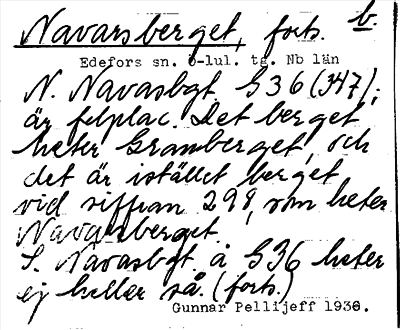 Navarsberget, forts. b.
Edefors sn. Ö-lul. tg. Nb län
N. Navasbgt G36 (347);
är felplac. Det berget
heter Granberget, och
det är istället berget
vid siffran 298, som heter
Navarsberget.
S. Navasbgt. å G36 heter
ej heller så. (forts.)
Gunnar Pellijeff 1936.